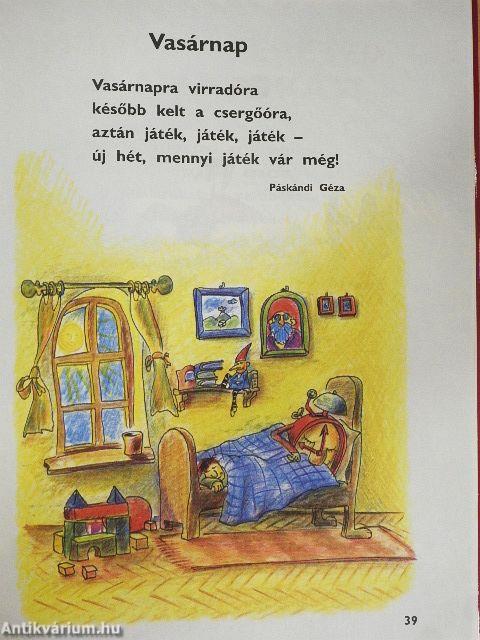 Vasárnap
Vasárnapra virradóra
később kelt a csergőóra,
aztán játék, játék, játék –
új hét, mennyi játék vár még!
Páskándi Géza
39
Antikvárium.hu